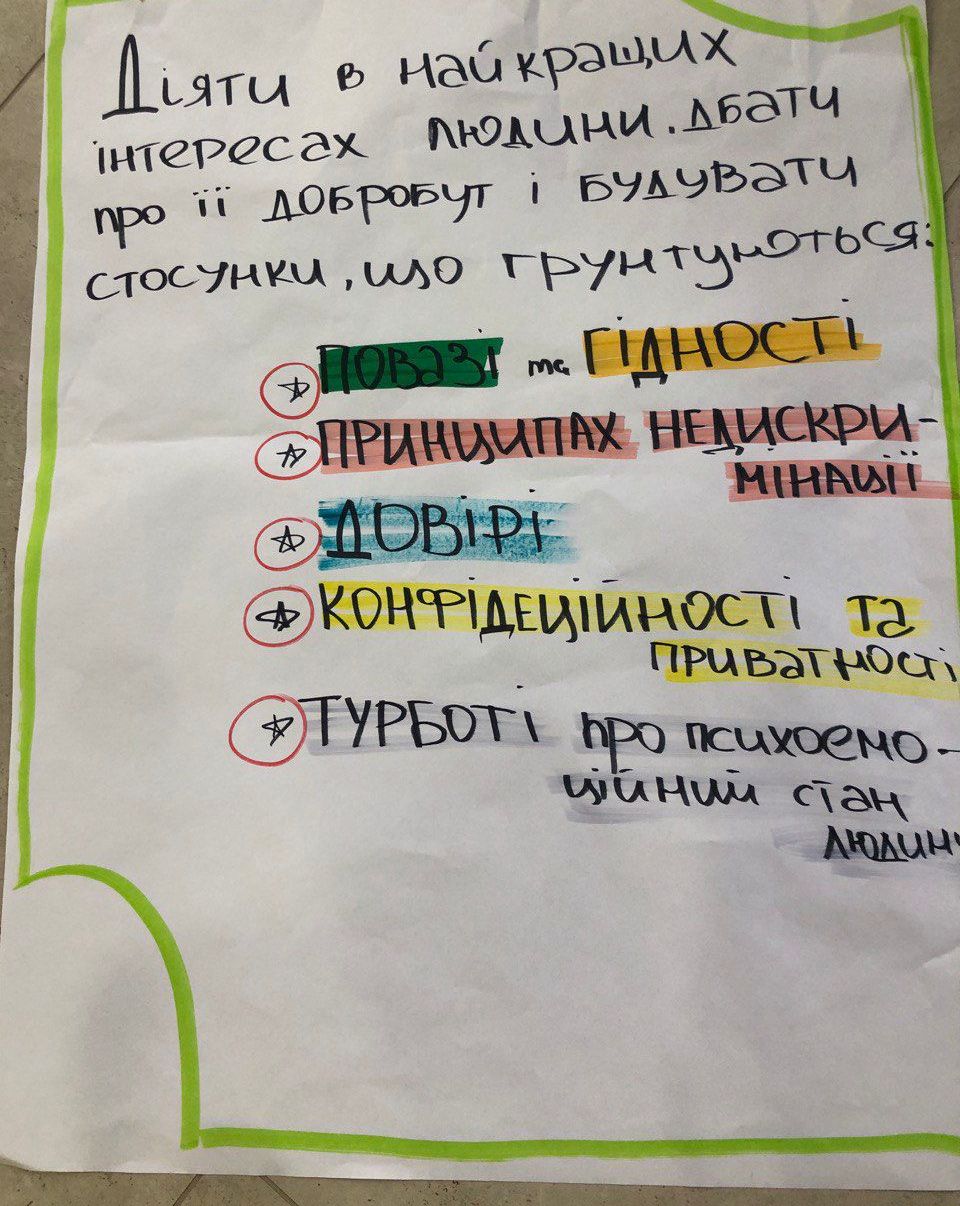 Діяти в найкращих
інтересах людини. дбати
про її добробут і будувати
стосунки, що грунтуються:
ПОВАЗІ та ГІДНОСТІ
ПРИНЦИПАХ НЕДИСКРИ-
МІНАЦІЇ
ДОВІРІ
КОНФІДЕЦІЙНОСТІ ТА
ПРИВАТНОСТІ
ТУРБОТІ про психоемо-
ційний стан
людини